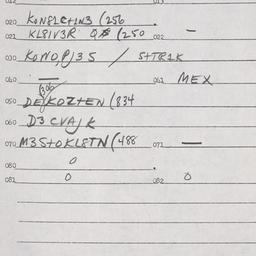 020 KON8LC+1N3 (256
021 KL8IV3R Q$ (250 022 —
030 KONOPJ35 / S++R1K
040 — 041 MEX
(306
050 DEKOZTEN (834
060 D3 CVAJK
070 M3S+OKL8TN (488 071 —
080 0
081 0 082 0